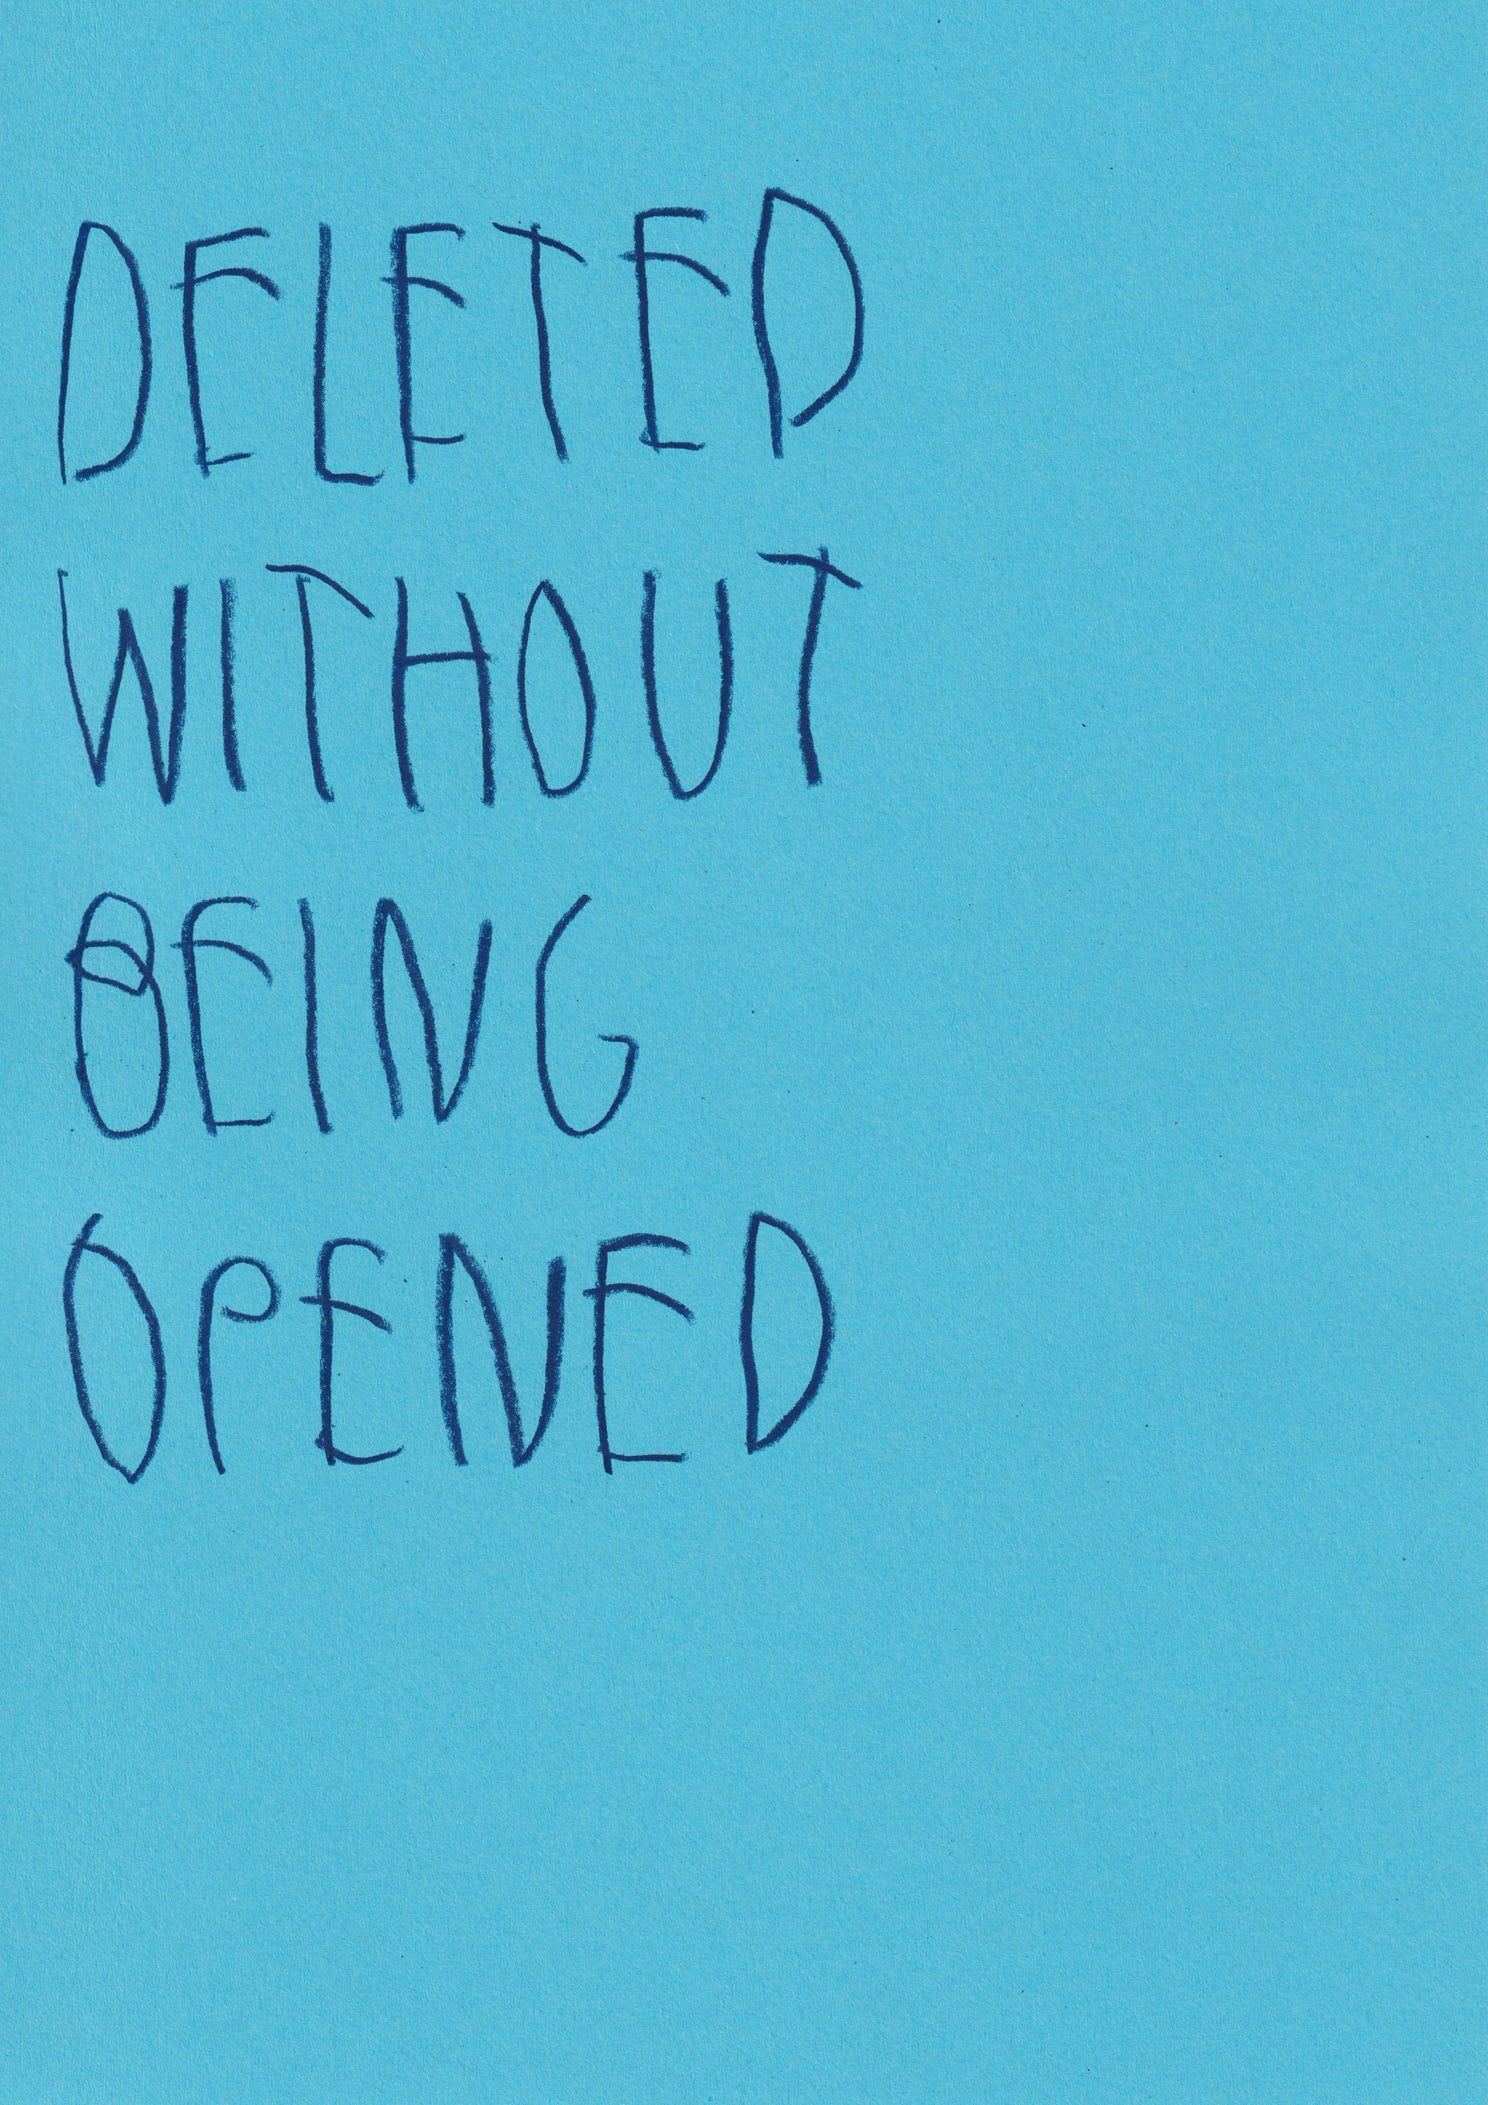 DELETED
WITHOUT
BEING
OPENED